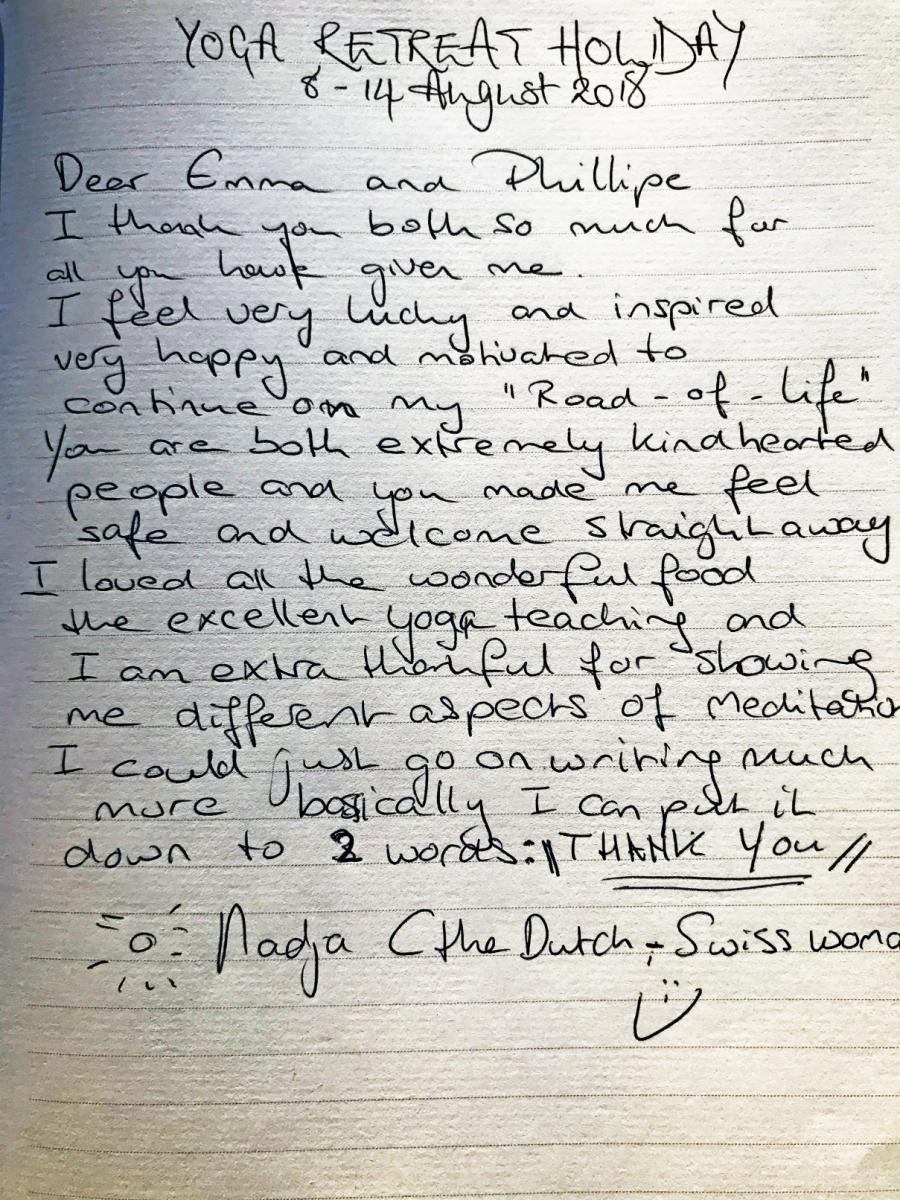 YOGA RETREAT HOLIDAY
8 - 14 August 2018
Dear Emma and Phillipe
I thank you both so much for
all you have given me.
I feel very lucky and inspired
very happy and motivated to
continue on my "Road-of-life"
You are both extremely kindhearted
people and you made me feel
safe and welcome straight away
I loved all the wonderful food
the excellent yoga teaching and
I am extra thankful for showing
me different aspects of Meditation
I could just go on writing much
more basically I can put it
down to 2 words: "THANK You"
Nadja (the Dutch-Swiss woma